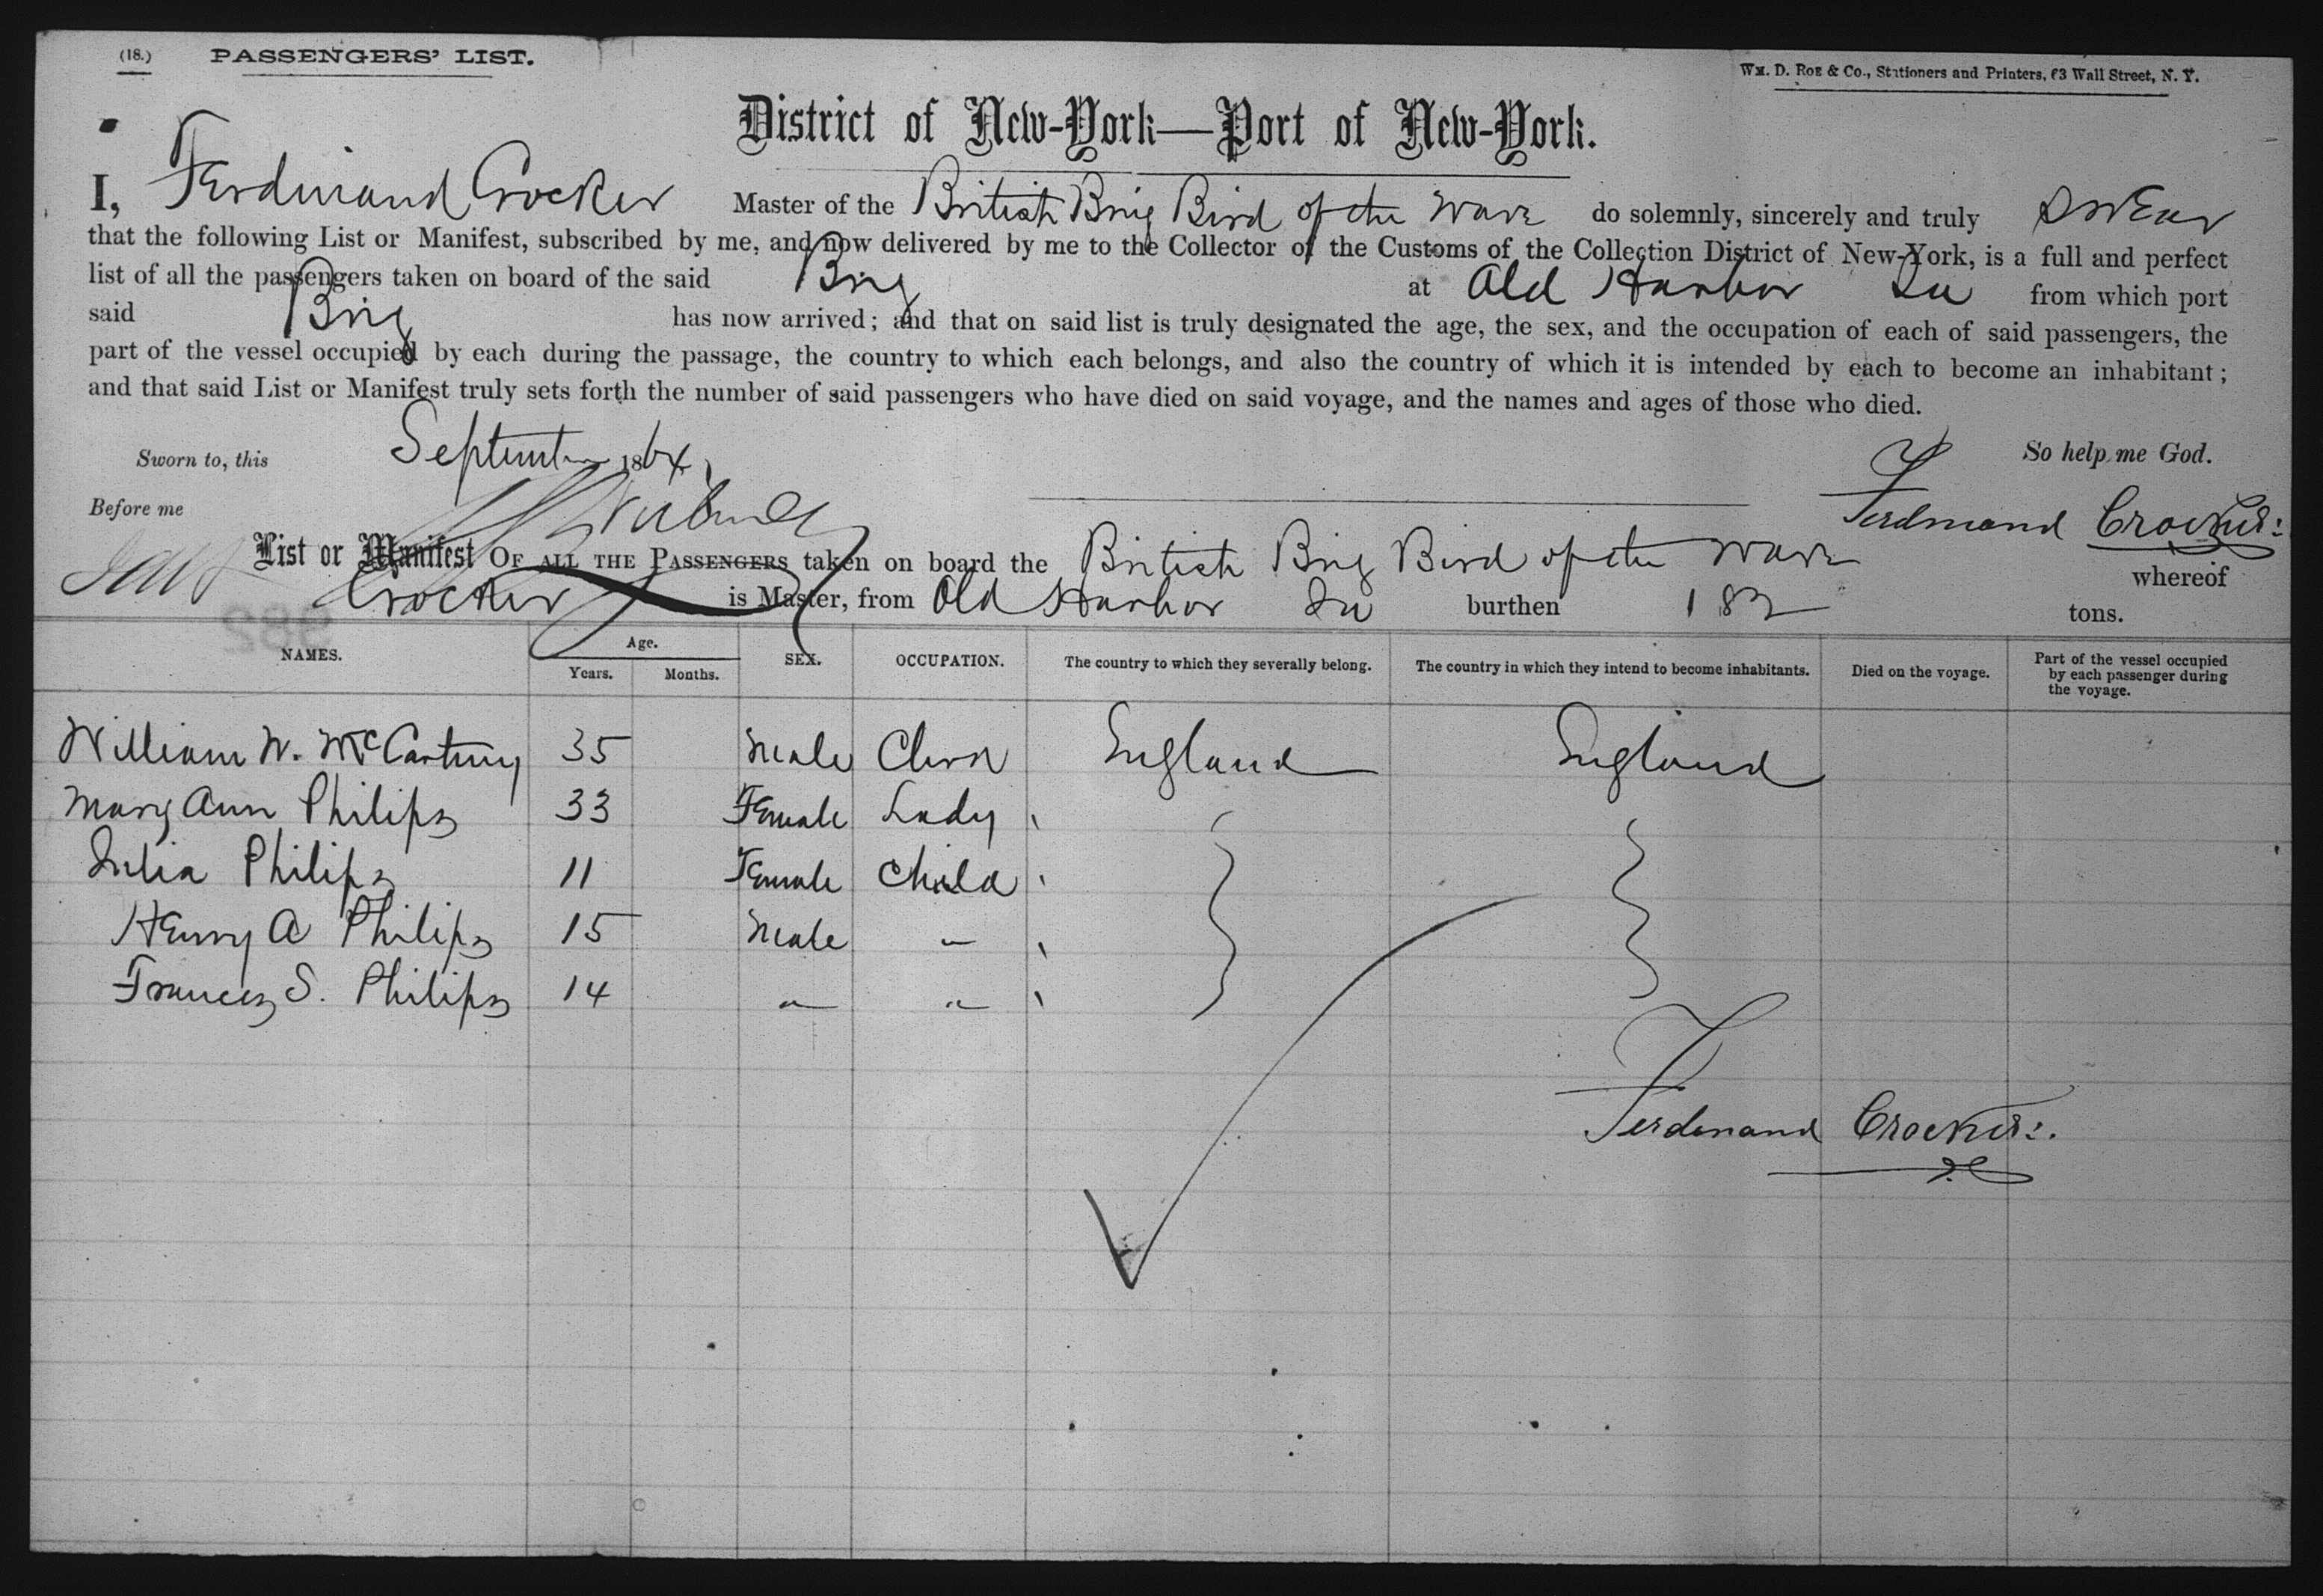 (18.) PASSENGERS' LIST.
Wm. D. Roe & Co., Stationers and Printers, 63 Wall Street, N. Y.
District of New-York—Port of New-York.
I, Ferdinand Crocker Master of the British Brig Bird of the Wave do solemnly, sincerely and truly swear
that the following List or Manifest, subscribed by me, and now delivered by me to the Collector of the Customs of the Collection District of New-York, is a full and perfect
list of all the passengers taken on board of the said Brig at Old Harbor Ja from which port
said Brig has now arrived; and that on said list is truly designated the age, the sex, and the occupation of each of said passengers, the
part of the vessel occupied by each during the passage, the country to which each belongs, and also the country of which it is intended by each to become an inhabitant;
and that said List or Manifest truly sets forth the number of said passengers who have died on said voyage, and the names and ages of those who died.
Sworn to, this September 1864 So help me God.
Before me Ferdinand Crocker
List or Manifest OF ALL THE PASSENGERS taken on board the British Brig Bird of the Wave whereof
Crocker is Master, from Old Harbor Ja burthen 182 tons.
982
NAMES. Age. Years. Months. SEX. OCCUPATION. The country to which they severally belong. The country in which they intend to become inhabitants. Died on the voyage. Part of the vessel occupied by each passenger during the voyage.
William W. McCartney 35 Male Clerk England England
Mary Ann Philips 33 Female Lady
Julia Philips 11 Female Child
Henry A Philips 15 Male "
Frances S. Philips 14 " "
Ferdinand Crocker